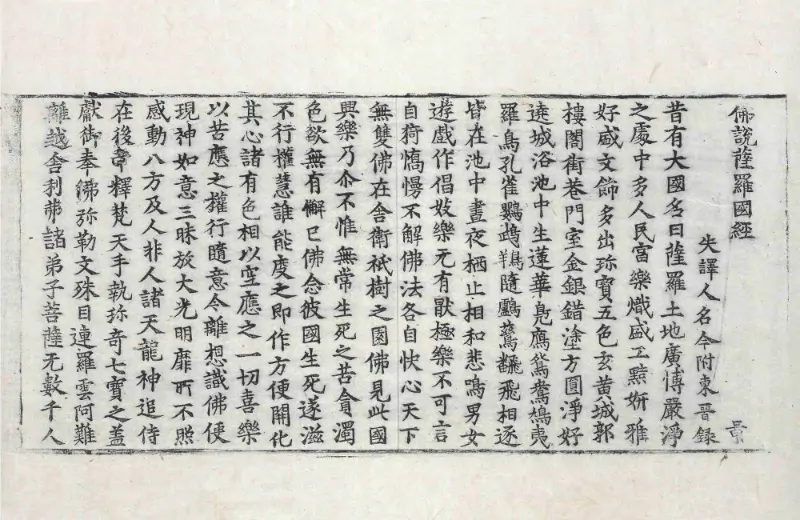 佛說薩羅國經 景
失譯人名今附東晉錄
昔有大國名曰薩羅土地廣博嚴淨
之處中多人民富樂熾盛工黠姸雅
好盛文飾多出珎寶五色玄黃城郭
樓閣街巷門室金銀錯塗方圓淨好
遶城浴池中生蓮華鳧鴈鴛鴦夷
羅鳥孔雀鸚鵡隨鸝飛相逐
皆在池中晝夜栖止相和悲鳴男女
遊戲作倡妓樂无有猒極樂不可言
自猗憍慢不解佛法各自快心天下
無雙佛在舍衛祇樹之園佛見此國
興樂乃尒不惟無常生死之苦貪濁
色欲無有懈已佛念彼國生死遂滋
不行權慧誰能度之即作方便開化
其心諸有色相以空應之一切喜樂
以苦應之權行隨意令離想識佛便
現神如意三昧放大光明靡所不照
感動八方及人非人諸天龍神追侍
在後帝釋梵天手執珎奇七寶之蓋
獻御奉佛弥勒文殊目連羅雲阿難
離越舍利弗諸弟子菩薩无數千人